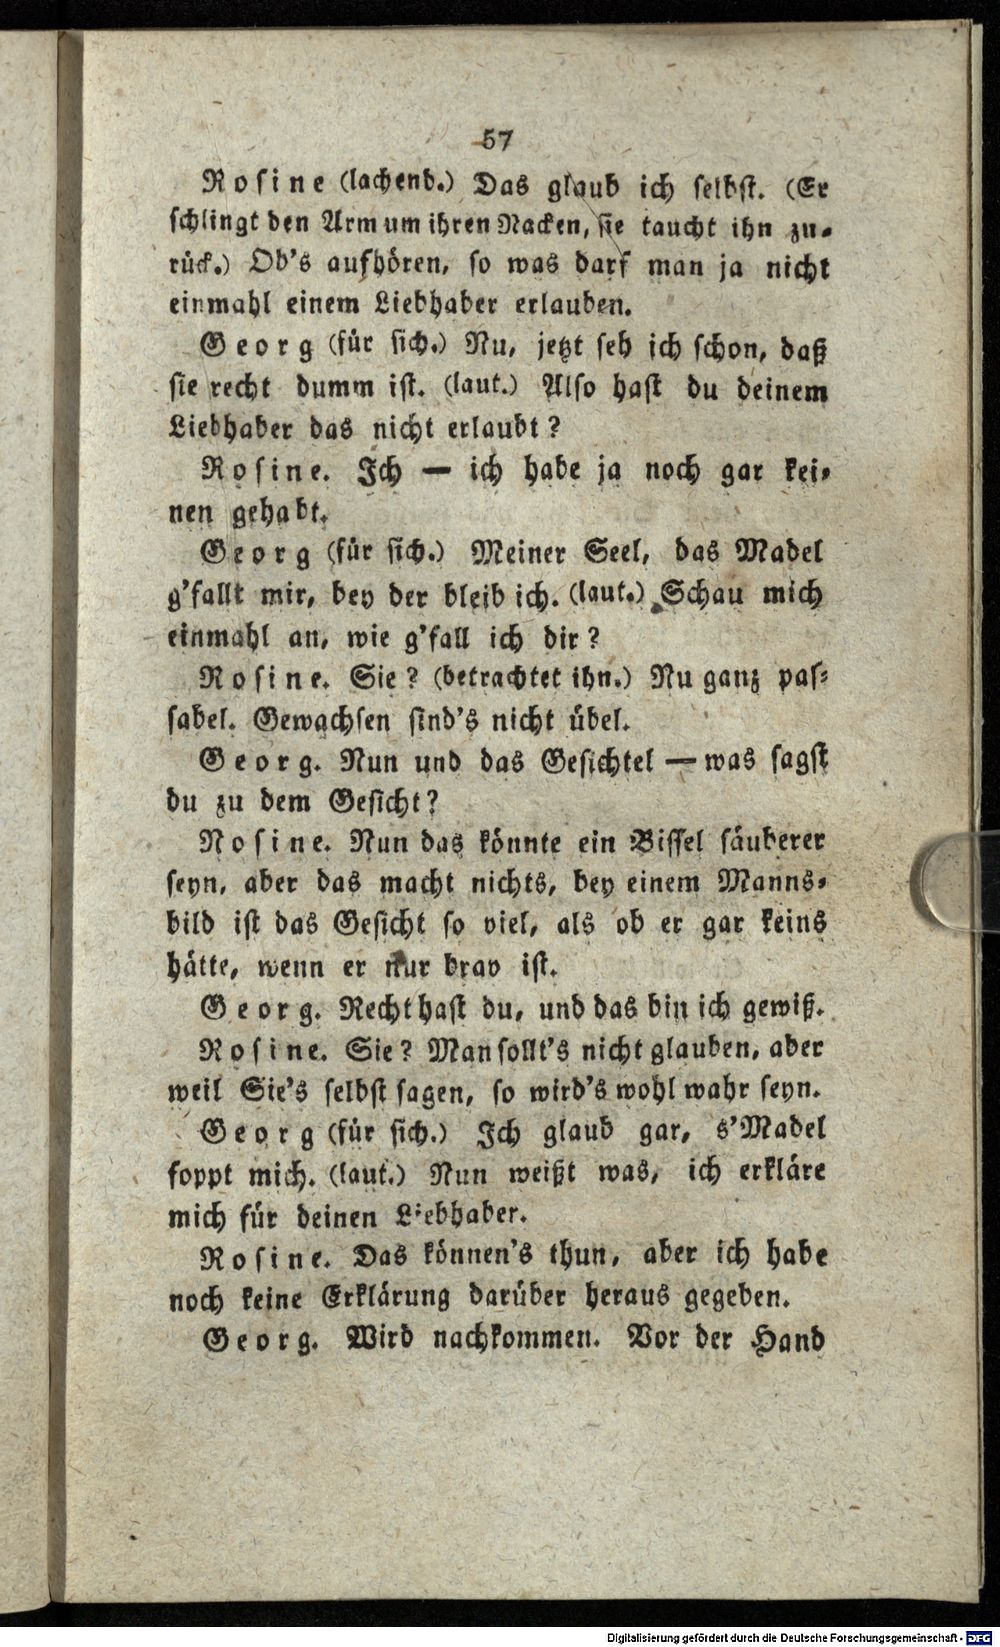 57
Rosine (lachend.) Das glaub ich selbst. (Er
schlingt den Arm um ihren Nacken, sie taucht ihn zu-
rück.) Ob's aufhören, so was darf man ja nicht
einmahl einem Liebhaber erlauben.
Georg (für sich.) Nu, jetzt seh ich schon, daß
sie recht dumm ist. (laut.) Also hast du deinem
Liebhaber das nicht erlaubt?
Rosine. Ich — ich habe ja noch gar kei-
nen gehabt.
Georg (für sich.) Meiner Seel, das Madel
g'fallt mir, bey der bleib ich. (laut.) Schau mich
einmahl an, wie g'fall ich dir?
Rosine. Sie? (betrachtet ihn.) Nu ganz pas-
sabel. Gewachsen sind's nicht übel.
Georg. Nun und das Gesichtel — was sagst
du zu dem Gesicht?
Rosine. Nun das könnte ein Bissel säuberer
seyn, aber das macht nichts, bey einem Manns-
bild ist das Gesicht so viel, als ob er gar keins
hätte, wenn er nur brav ist.
Georg. Recht hast du, und das bin ich gewiß.
Rosine. Sie? Man sollt's nicht glauben, aber
weil Sie's selbst sagen, so wird's wohl wahr seyn.
Georg (für sich.) Ich glaub gar, s'Madel
foppt mich. (laut.) Nun weißt was, ich erkläre
mich für deinen Liebhaber.
Rosine. Das können's thun, aber ich habe
noch keine Erklärung darüber heraus gegeben.
Georg. Wird nachkommen. Vor der Hand
Digitalisierung gefördert durch die Deutsche Forschungsgemeinschaft - DFG